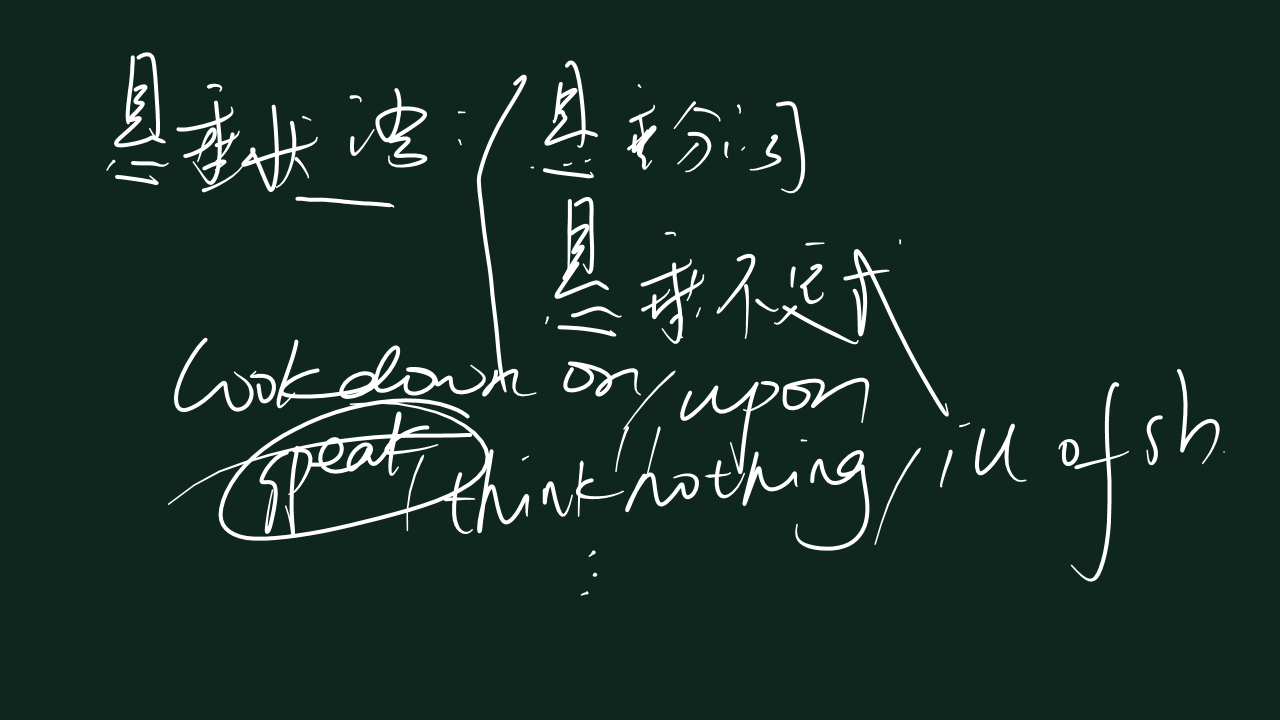 悬垂状语:悬垂分词
悬垂不定式
look down on/upon
speak/think nothing/ill of sb.